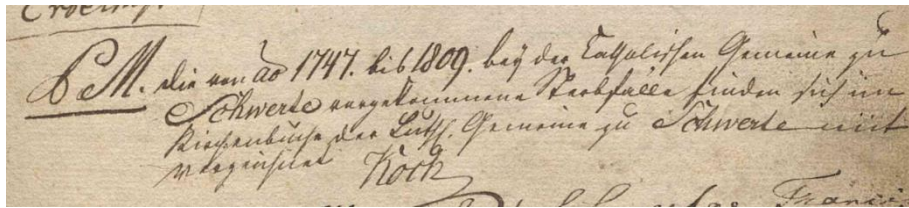 P. M. die von ao 1747. bis 1809. bey der Catholischen Gemeine zu
Schwerte vorgekommene Sterbfälle finden sich im
Kirchenbuche der Luth. Gemeine zu Schwerte mit
verzeichnet Koch
Franci